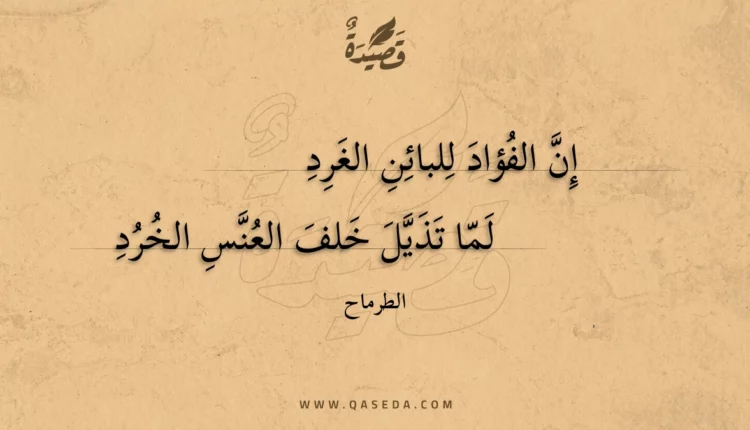 قَصِيدَةٌ
إِنَّ الفُؤادَ لِلبائِنِ الغَرِدِ
لَمّا تَذَيَّلَ خَلفَ العُنَّسِ الخُرُدِ
الطرماح
WWW.QASEDA.COM